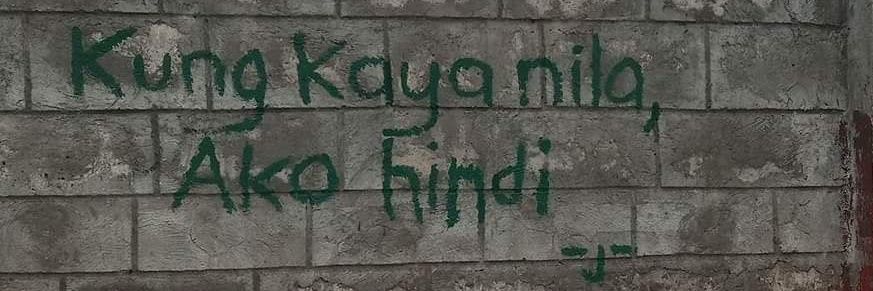 Kung kaya nila,
Ako hindi
-J-